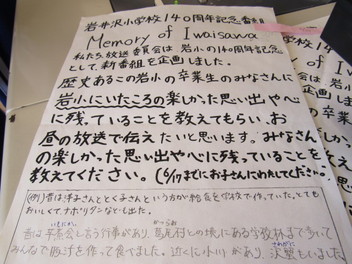 岩井沢小学校140周年記念番組
Memory of Iwaisawa
私たち放送委員会は岩小の140周年記念
として、新番組を企画しました。
歴史あるこの岩小の卒業生のみなさんに
岩小にいたころの楽しかった思い出や心
に残っていることを教えてもらい、お
昼の放送で伝えたいと思います。みなさん
の楽しかった思い出や心に残っていることを
教えてください。(6/17までにお手さんにわたしてください。)
(例)昔は澤子さんととく子さんという方が給食を学校で作っていた。とても
おいしくてナポリタンなども出た。
昔は芋煮会という行事があり、葛尾村との境にある学校林まで歩いて
みんなで豚汁を作って食べました。近くに小川があり、沢蟹もいました